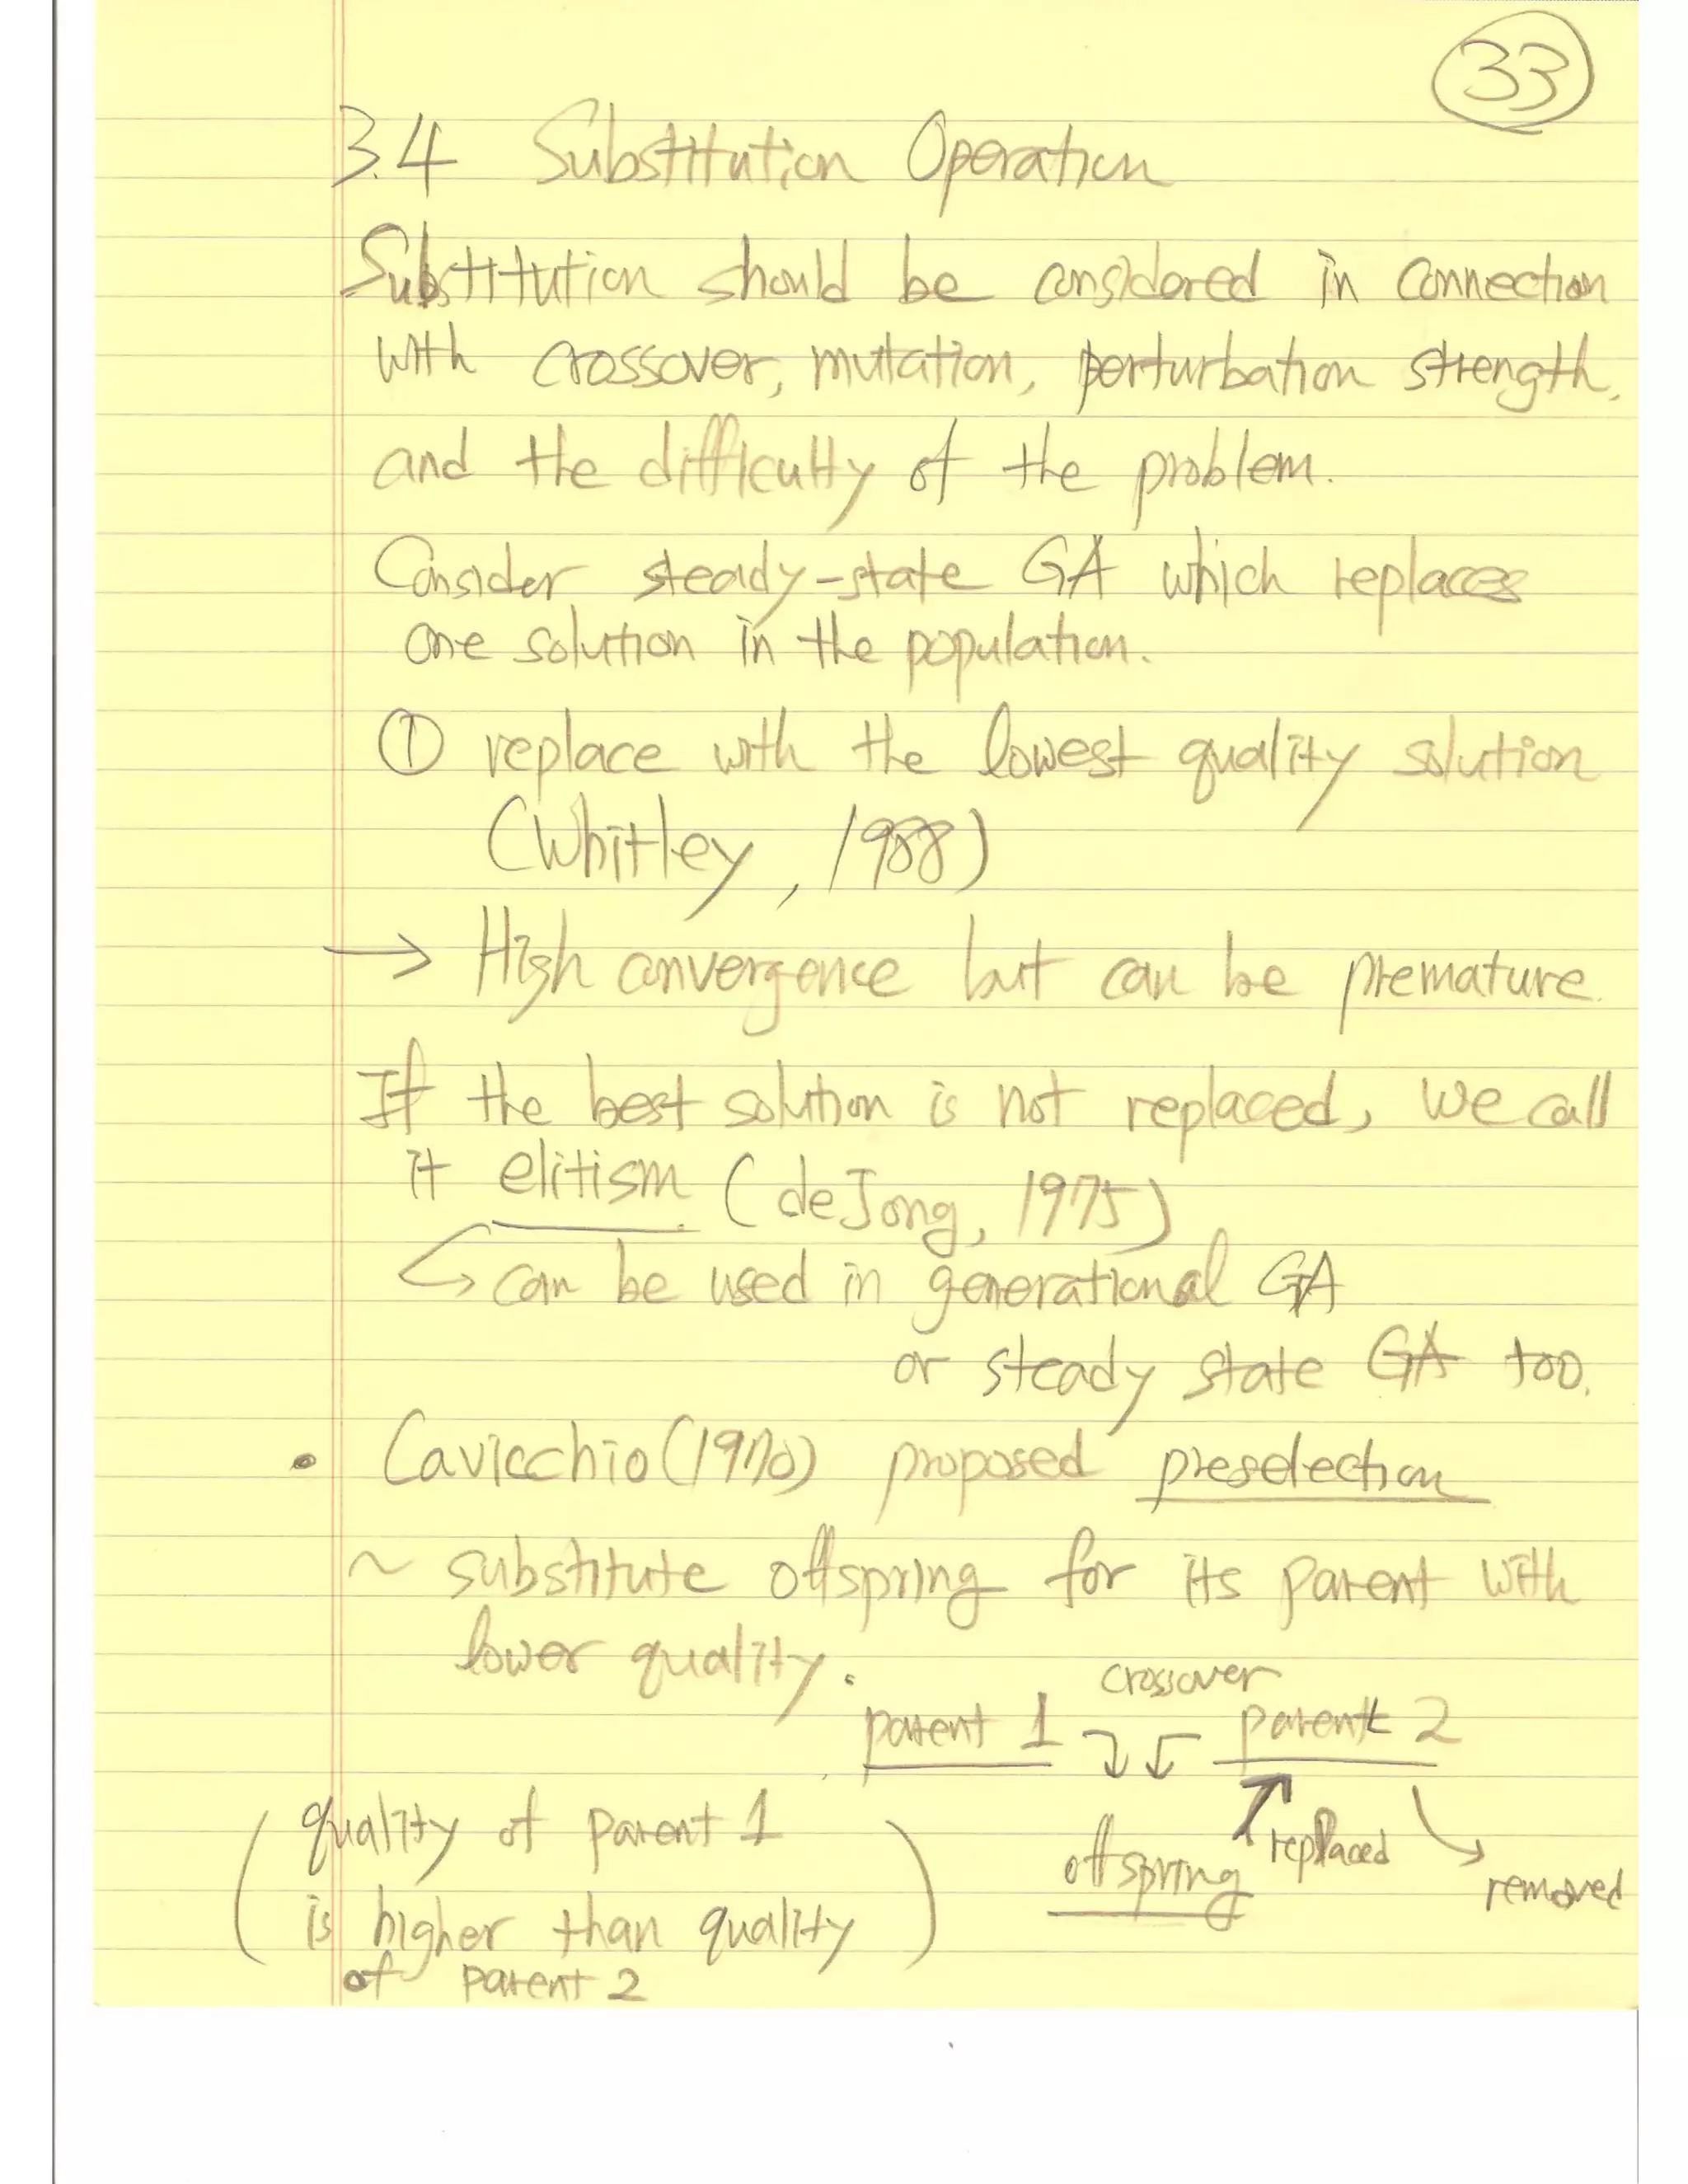 33
3.4 Substitution Operation
Substitution should be considered in connection
with crossover, mutation, perturbation strength,
and the difficulty of the problem.
Consider steady-state GA which replaces
one solution in the population.
① replace with the lowest quality solution
(Whitley, 1988)
→ High convergence but can be premature.
If the best solution is not replaced, we call
it elitism (deJong, 1975)
↳ can be used in generational GA
or steady state GA too.
• Cavicchio (1970) proposed preselection
~ substitute offspring for its parent with
lower quality.
crossover
parent 1 parent 2
replaced
offspring
removed
(quality of parent 1
is higher than quality
of parent 2)